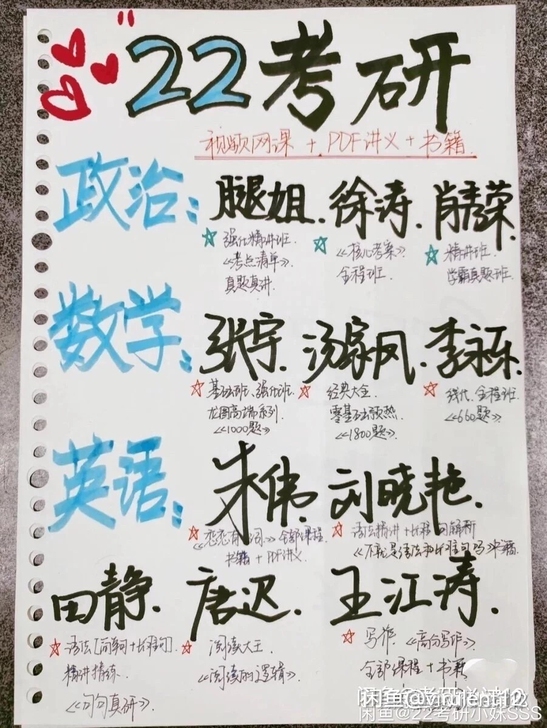 22考研
视频网课 + PDF讲义 + 书籍
政治: 腿姐. 徐涛. 肖秀荣.
☆ 强化精讲班 ☆ 《核心考案》 ☆ 精讲班
《考点清单》 全程班 学霸真题班
真题真讲
数学: 张宇. 汤家凤. 李永乐.
☆ 基础班、强化班 ☆ 经典大全 ☆ 线代、全程班
龙图高端系列 零基础预热 《660题》
《1000题》 《1800题》
英语: 朱伟. 刘晓艳.
☆ 《恋恋有词》全部课程 ☆ 语法精讲+长难句解析
书籍+PDF讲义 《不就是语法和长难句吗》书籍
田静. 唐迟. 王江涛.
☆ 语法[简单句+长难句] ☆ 阅读大王 ☆ 写作 《高分写作》
精讲精练 《阅读的逻辑》 全部课程+书籍
《句句真研》
闲鱼@viralent12
闲鱼@22考研小妹SSS